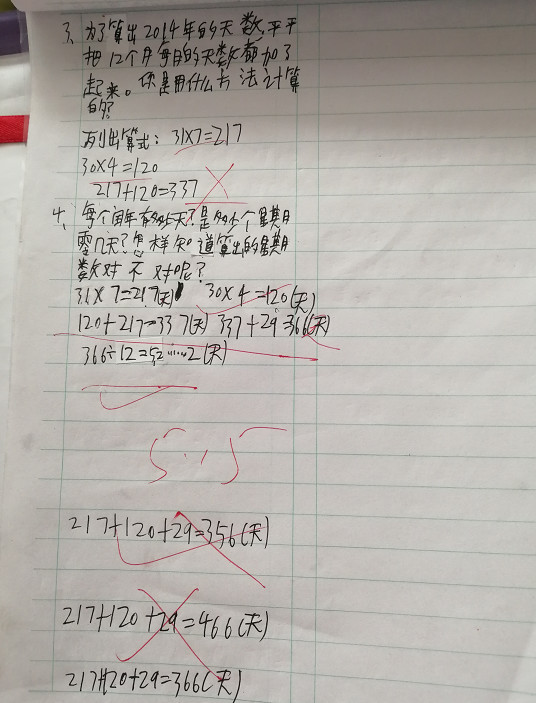 3、为了算出2014年的天数,平平
把12个月每月的天数都加了
起来。你是用什么方法计算
的?
列出算式：31X7=217
30X4=120
217+120=337
4、每个闰年有多少天?是多少个星期
零几天?怎样知道算出的星期
数对不对呢?
31X7=217(天) 30X4=120(天)
120+217=337(天) 337+29=366(天)
366÷12=52……2(天)
217+120+29=356(天)
217+120+29=466(天)
217+120+29=366(天)